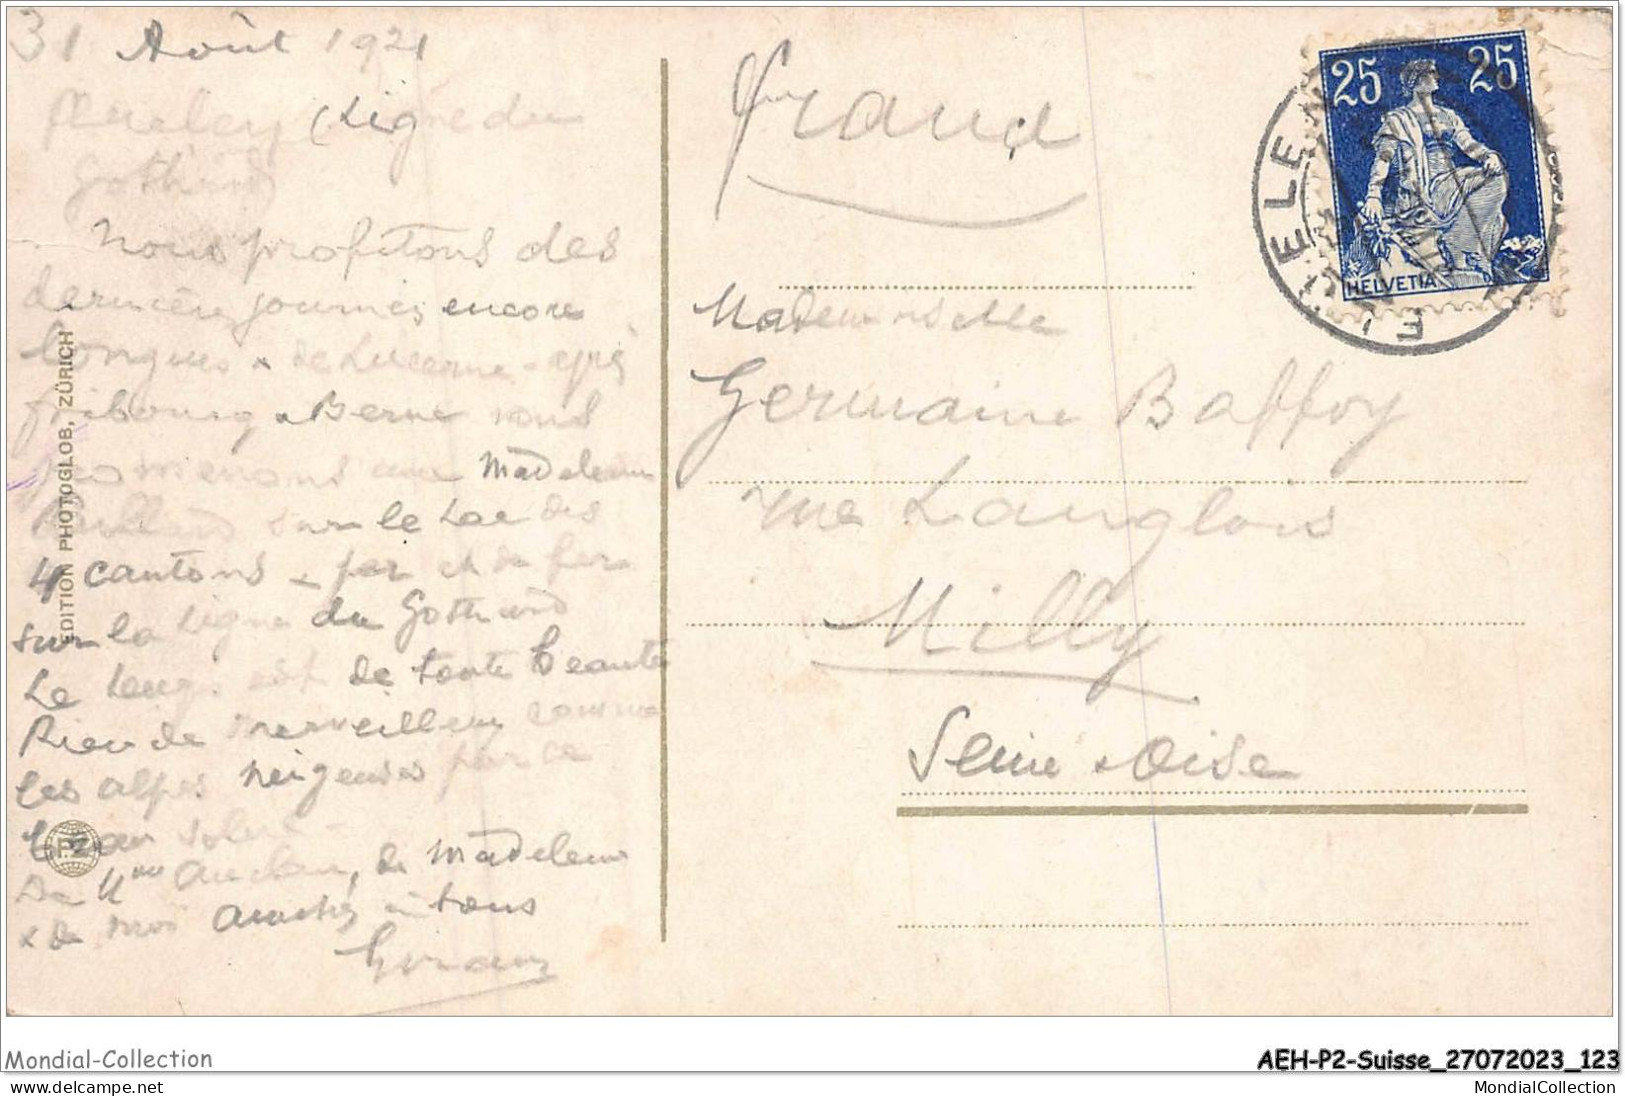 31 Août 1921
(Ligne du
Gothard
Nous profitons des
dernières journées encore
longues de Lucerne après
fribourg & Berne nous
promenons avec Madeleine
sur le Lac des
4 cantons - par et de fer
sur la ligne du Gothard
Le temps est de toute beauté
Rien de merveilleux comme
les alpes neigeuses par ce
beau soleil -
De Mme, de Madeleine
& de moi amitiés à tous
EDITION PHOTOGLOB, ZÜRICH
P.Z
France
Mademoiselle
Germaine Baffoy
rue Langlois
Milly
Seine & Oise
25 25
HELVETIA
Mondial-Collection
AEH-P2-Suisse_27072023_123
www.delcampe.net
MondialCollection